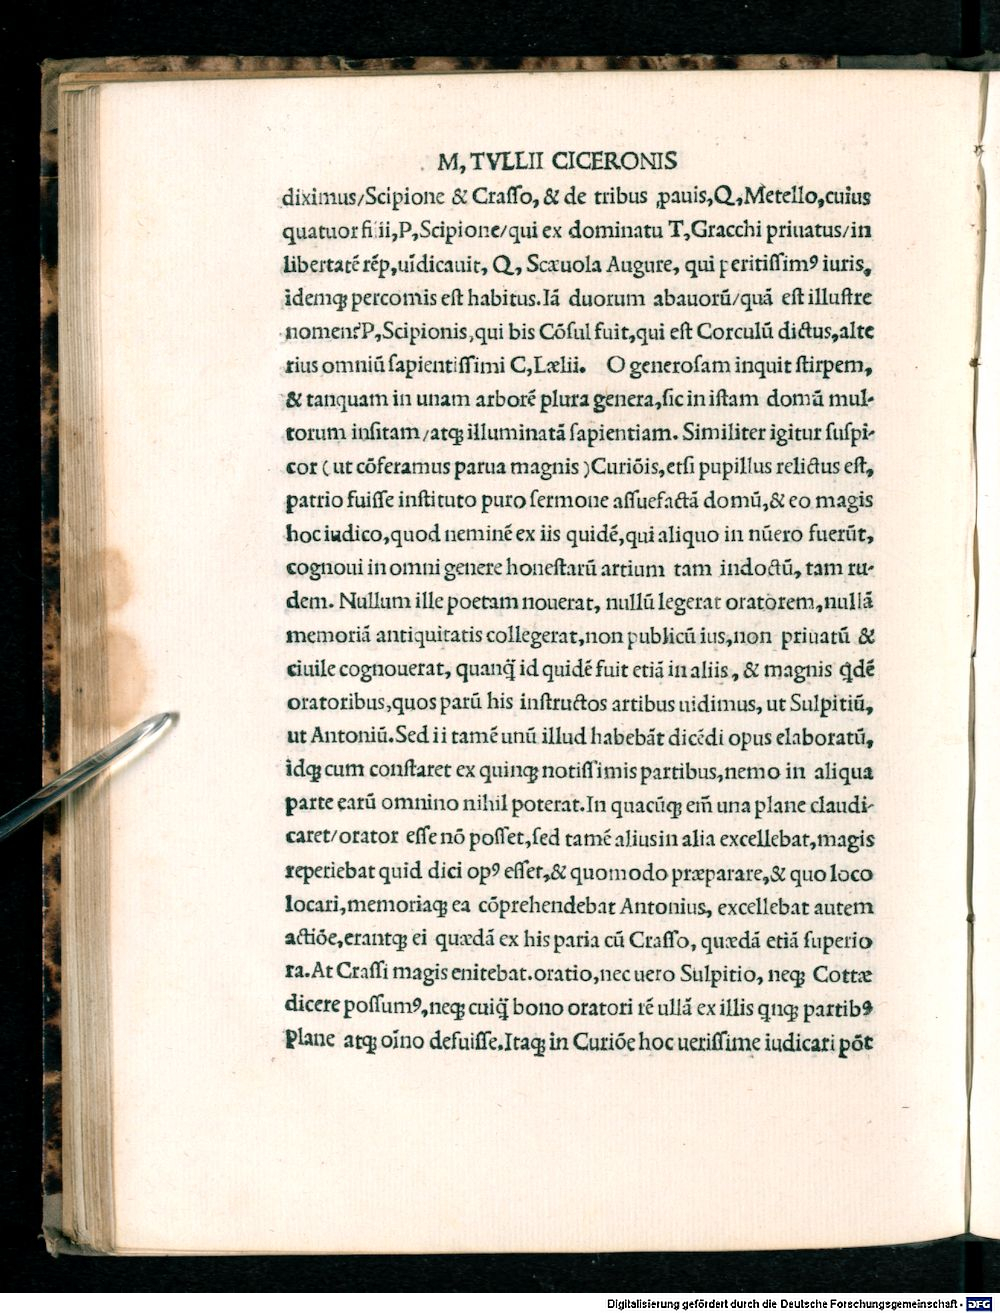 M, TVLLII CICERONIS
diximus/Scipione & Crasso, & de tribus ꝓauis,Q,Metello,cuius
quatuor filii,P,Scipione/qui ex dominatu T,Gracchi priuatus/in
libertatē rēp,uīdicauit, Q, Scæuola Augure, qui peritissimꝰ iuris,
idemqꝫ percomis est habitus.Iā duorum abauorū/quā est illustre
nomen?P,Scipionis,qui bis Cōsul fuit,qui est Corculū dictus,alte
rius omniū sapientissimi C,Lælii. O generosam inquit stirpem,
& tanquam in unam arborē plura genera,sic in istam domū mul-
torum insitam/atqꝫ illuminatā sapientiam. Similiter igitur suspi-
cor ( ut cōferamus parua magnis )Curiōis,etsi pupillus relictus est,
patrio fuisse instituto puro sermone assuefactā domū,& eo magis
hoc iudico,quod neminē ex iis quidē,qui aliquo in nūero fuerūt,
cognoui in omni genere honestarū artium tam indoctū, tam ru-
dem. Nullum ille poetam nouerat, nullū legerat oratorem,nullā
memoriā antiquitatis collegerat,non publicū ius,non priuatū &
ciuile cognouerat, quanq̄ id quidē fuit etiā in aliis, & magnis qdē
oratoribus,quos parū his instructos artibus uidimus, ut Sulpitiū,
ut Antoniū.Sed ii tamē unū illud habebāt dicēdi opus elaboratū,
idqꝫ cum constaret ex quinqꝫ notissimis partibus,nemo in aliqua
parte earū omnino nihil poterat.In quacūqꝫ em̄ una plane claudi-
caret/orator esse nō posset,sed tamē alius in alia excellebat,magis
reperiebat quid dici opꝰ esset,& quomodo præparare,& quo loco
locari,memoriaqꝫ ea cōprehendebat Antonius, excellebat autem
actiōe,erantqꝫ ei quædā ex his paria cū Crasso, quædā etiā superio
ra.At Crassi magis enitebat.oratio,nec uero Sulpitio, neqꝫ Cottæ
dicere possumꝰ,neqꝫ cuiq̄ bono oratori rē ullā ex illis qnqꝫ partibꝰ
Plane atqꝫ oīno defuisse.Itaqꝫ in Curiōe hoc uerissime iudicari pōt
Digitalisierung gefördert durch die Deutsche Forschungsgemeinschaft - DFG